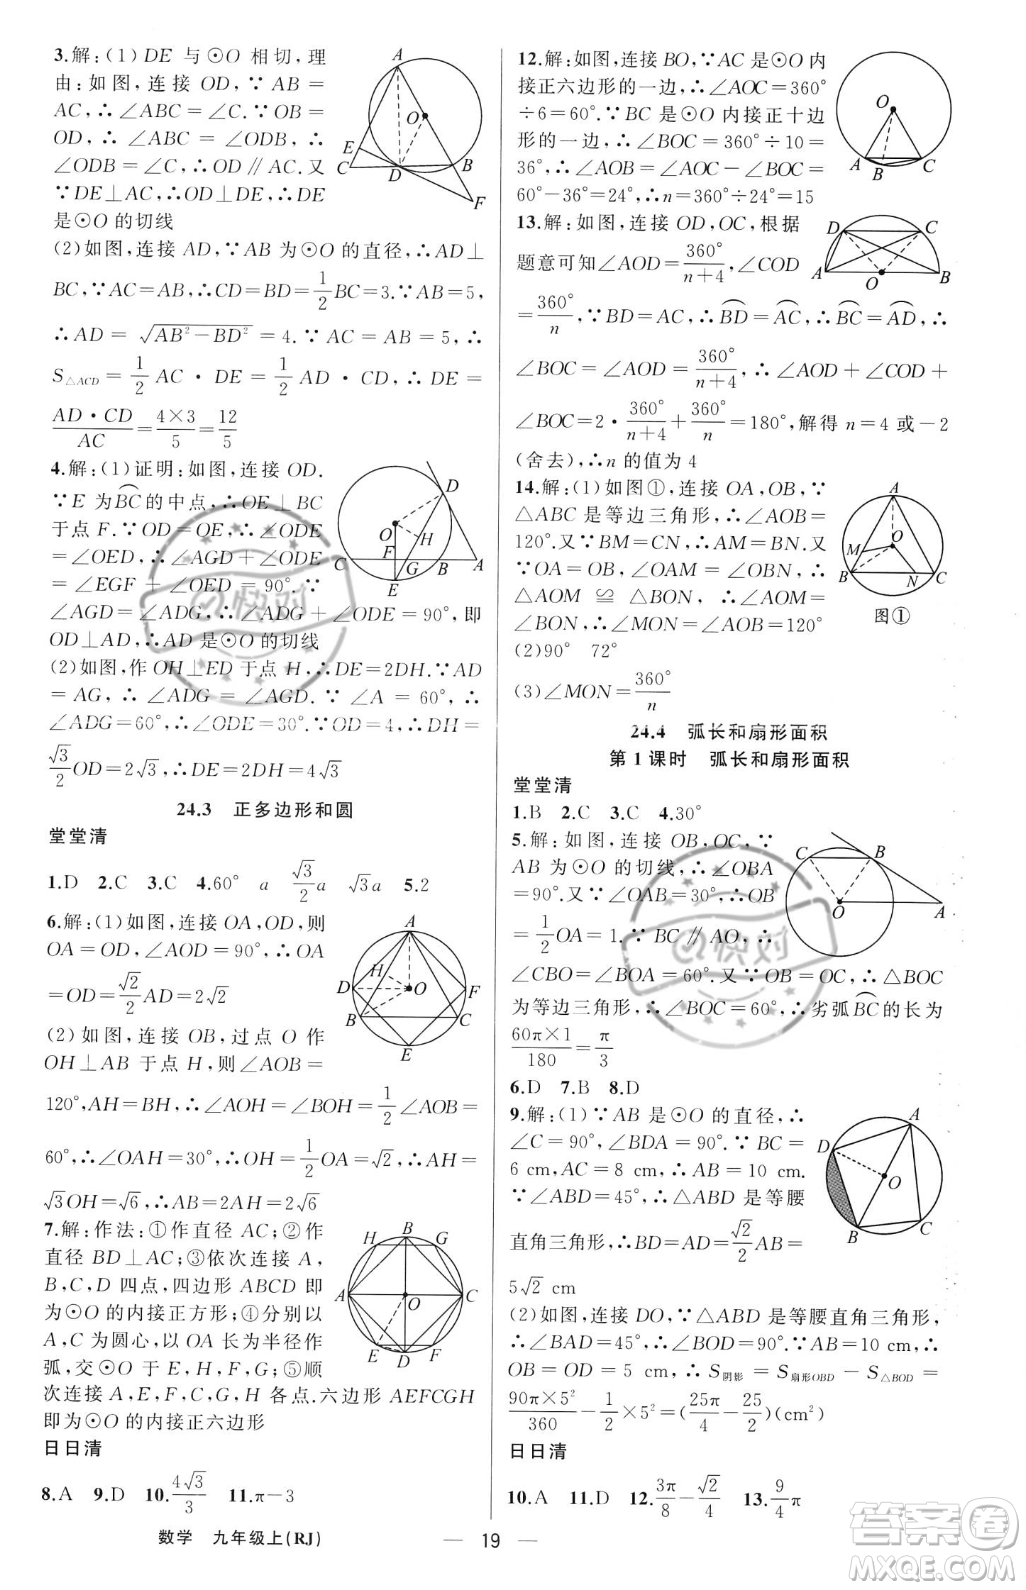 3.解:(1)DE 与⊙O 相切,理
由:如图,连接 OD,∵AB=
AC,∴∠ABC=∠C.∵OB=
OD,∴∠ABC=∠ODB,∴
∠ODB=∠C,∴OD∥AC.又
∵DE⊥AC,∴OD⊥DE,∴DE
是⊙O 的切线
(2)如图,连接 AD,∵AB 为⊙O 的直径,∴AD⊥
BC,∵AB=AC,∴CD=BD=1/2BC=3.∵AB=5,
∴AD=√(AB²-BD²)=4.∵AC=AB=5,∴
S△ACD=1/2 AC·DE=1/2 AD·CD,∴DE=
AD·CD/AC=4×3/5=12/5
4.解:(1)证明:如图,连接 OD.
∵E 为BC的中点,∴OE⊥BC
于点 F.∵OD=OE,∴∠ODE
=∠OED,∴∠AGD+∠OED
=∠EGF+∠OED=90°.∵
∠AGD=∠ADG,∴∠ADG+∠ODE=90°,即
OD⊥AD,∴AD是⊙O的切线
(2)如图,作OH⊥ED于点H,∴DE=2DH.∵AD
=AG,∴∠ADG=∠AGD.∵∠A=60°,∴
∠ADG=60°,∴∠ODE=30°.∵OD=4,∴DH=
√3/2OD=2√3,∴DE=2DH=4√3
24.3 正多边形和圆
堂堂清
1.D 2.C 3.C 4.60° a √3/2a √3a 5.2
6.解:(1)如图,连接OA,OD,则
OA=OD,∠AOD=90°,∴OA
=√2/2AD=2√2
(2)如图,连接 OB,过点 O 作
OH⊥AB 于点 H,∵∠AOB=
120°,AH=BH,∴∠AOH=∠BOH=1/2∠AOB=
60°,∴∠OAH=30°,∴OH=1/2OA=√2,∴AH=
√3OH=√6,∴AB=2AH=2√6
7.解:作法:①作直径 AC;②作
直径 BD⊥AC;③依次连接 A,
B,C,D 四点,四边形 ABCD 即
为⊙O的内接正方形;④分别以
A,C为圆心,以OA长为半径作
弧,交⊙O于E,H,F,G;⑤顺
次连接A,E,F,C,G,H各点.六边形 AEFCGH
即为⊙O的内接正六边形
日日清
8.A 9.D 10.4√3/3 11.π-3
12.解:如图,连接 BO,∵AC是⊙O内
接正六边形的一边,∴∠AOC=360°
÷6=60°.∵BC 是⊙O内接正十边
形的一边,∴∠BOC=360°÷10=
36°,∴∠AOB=∠AOC-∠BOC=
60°-36°=24°,∴n=360°÷24°=15
13.解:如图,连接 OD,OC,根据
题意可知∠AOD=360°/n+4,∠COD
=360°/n,∵BD=AC,∴BD=AC,∴BC=AD,∴
∠BOC=∠AOD=360°/n+4,∴∠AOD+∠COD+
∠BOC=2·360°/n+4+360°/n=180°,解得 n=4 或-2
(舍去),∴n的值为4
14.解:(1)如图①,连接 OA,OB,∵
△ABC 是等边三角形,∴∠AOB=
120°.又∵BM=CN,∴AM=BN.又
∵OA=OB,∠OAM=∠OBN,∴
△AOM≌△BON,∴∠AOM=
∠BON,∴∠MON=∠AOB=120°
(2)90° 72°
(3)∠MON=360°/n
图①
24.4 弧长和扇形面积
第1课时 弧长和扇形面积
堂堂清
1.B 2.C 3.C 4.30°
5.解:如图,连接 OB,OC,∵
AB 为⊙O的切线,∴∠OBA
=90°.又∵∠OAB=30°,∴OB
=1/2OA=1.∵BC∥AO,∴
∠CBO=∠BOA=60°.又∵OB=OC,∴△BOC
为等边三角形,∴∠BOC=60°,∴劣弧BC的长为
60π×1/180=π/3
6.D 7.B 8.D
9.解:(1)∵AB是⊙O的直径,∴
∠C=90°,∠BDA=90°.∵BC=
6 cm,AC=8 cm,∴AB=10 cm.
∵∠ABD=45°,∴△ABD是等腰
直角三角形,∴BD=AD=√2/2AB=
5√2 cm
(2)如图,连接DO,∵△ABD是等腰直角三角形,
∴∠BAD=45°,∴∠BOD=90°.∵AB=10 cm,∴
OB=OD=5 cm,∴S阴影=S扇形OBD-S△BOD=
90π×5²/360-1/2×5²=(25π/4-25/2)(cm²)
日日清
10.A 11.D 12.3π/8-√2/4 13.9/4π
数学 九年级上(RJ)
— 19 —
快对
快对
答案圈
MXQE.COM